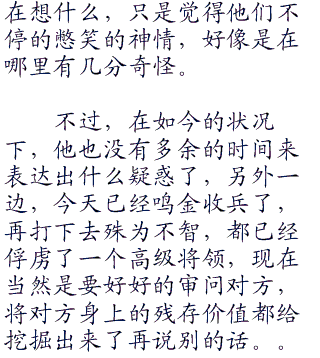 在想什么，只是觉得他们不
停的憋笑的神情，好像是在
哪里有几分奇怪。
不过，在如今的状况
下，他也没有多余的时间来
表达出什么疑惑了，另外一
边，今天已经鸣金收兵了，
再打下去殊为不智，都已经
俘虏了一个高级将领，现在
当然是要好好的审问对方，
将对方身上的残存价值都给
挖掘出来了再说别的话。。